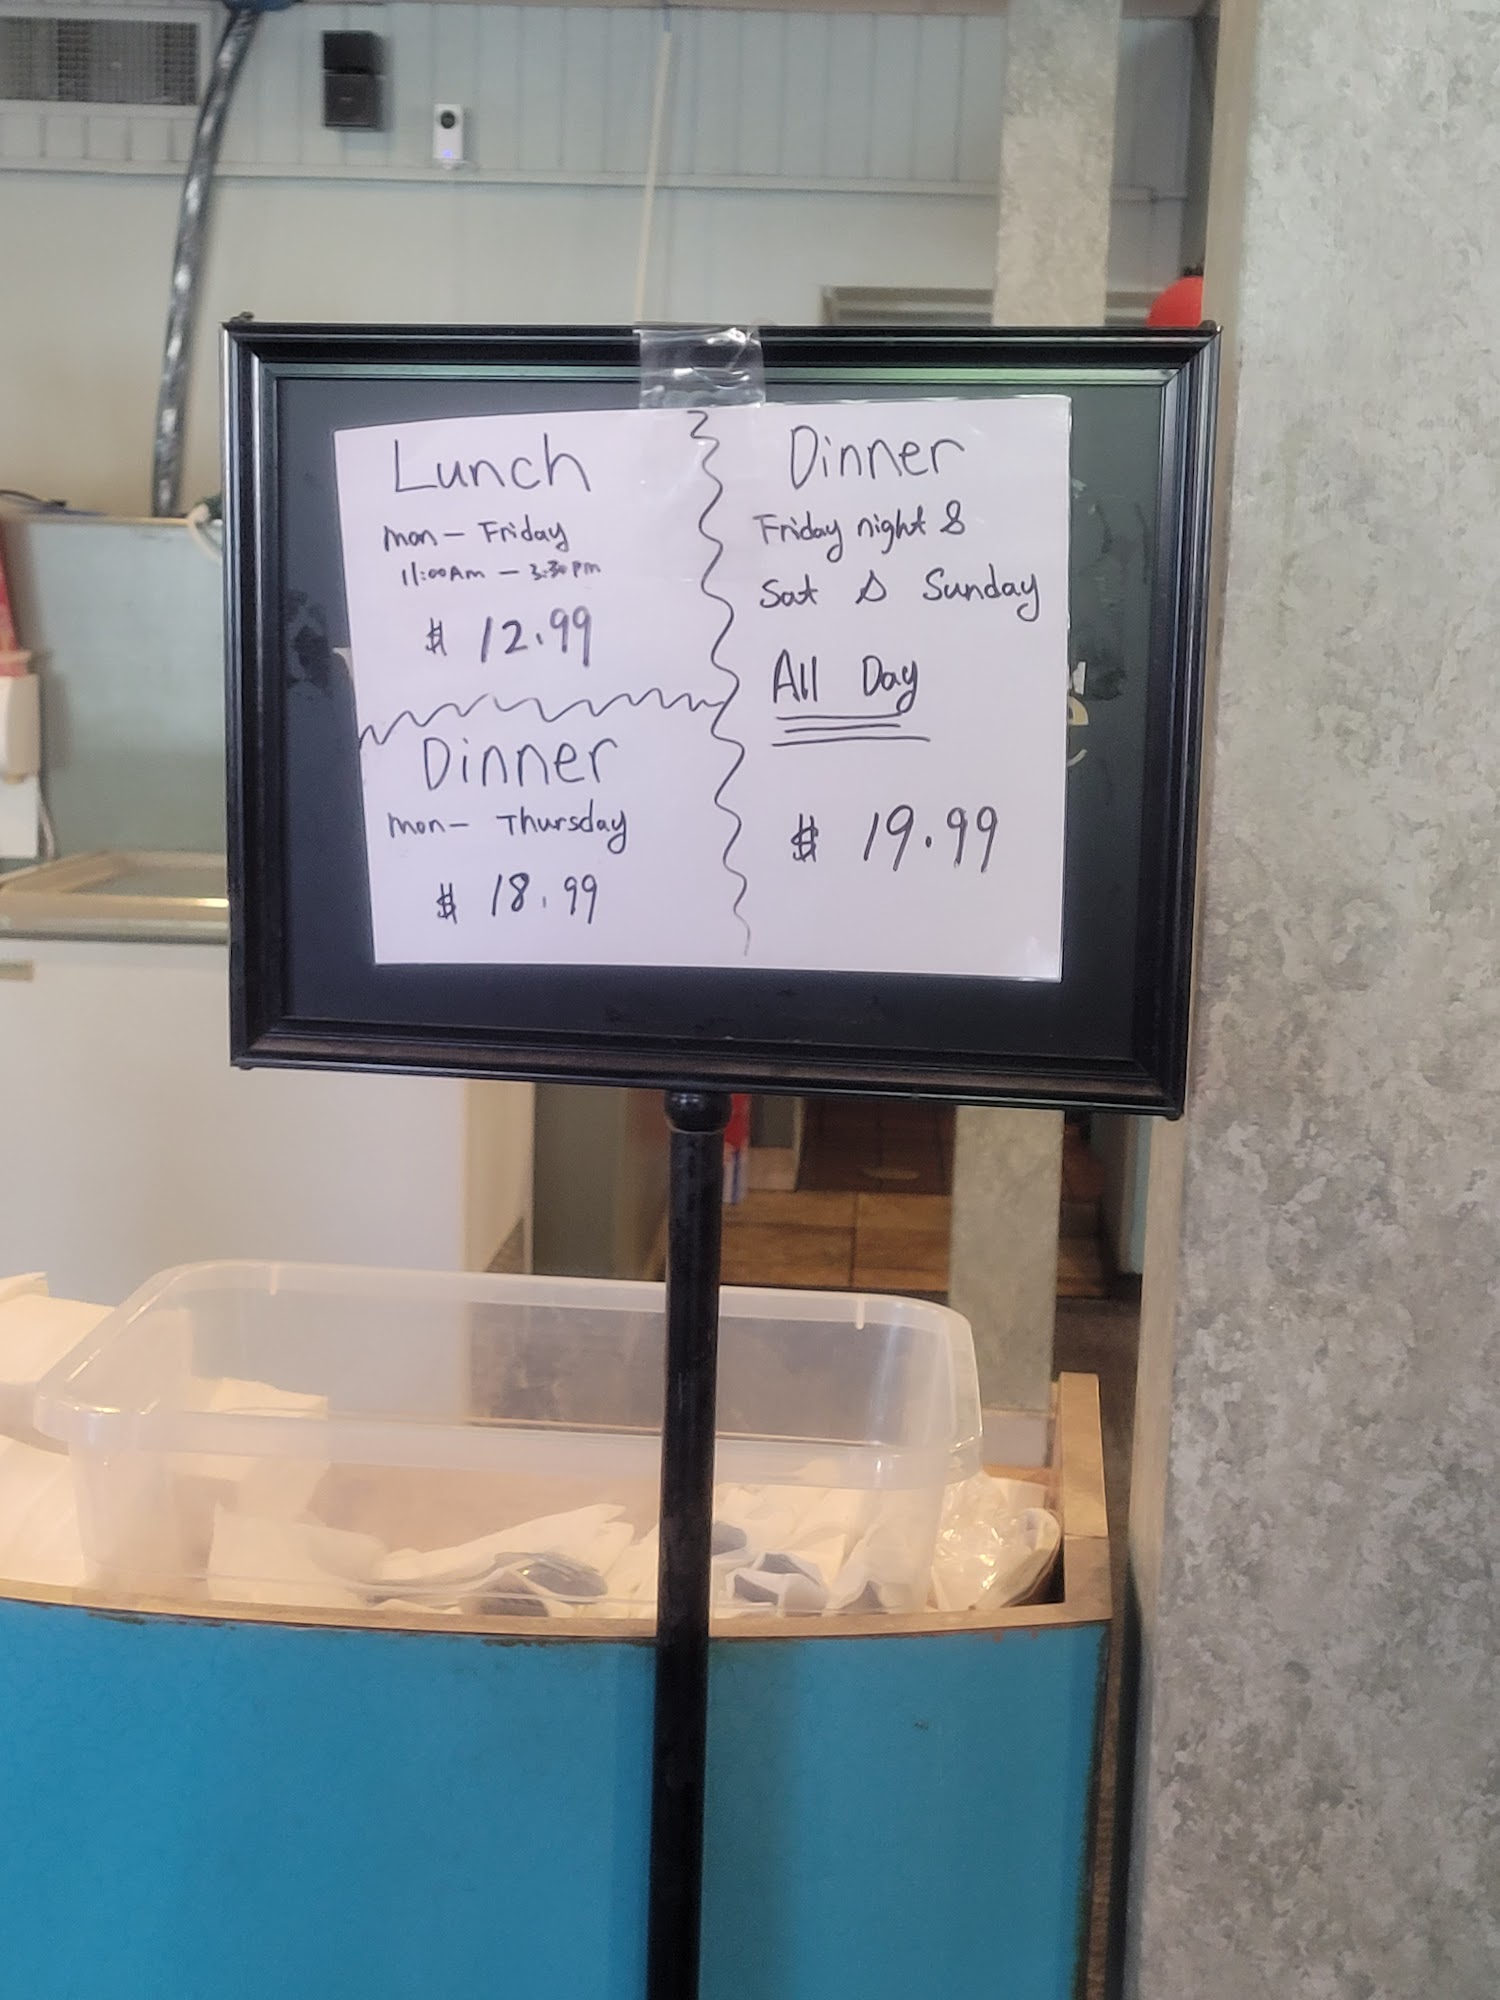 Lunch
mon - Friday
11:00 Am - 3:30 pm
$ 12.99
Dinner
mon - Thursday
$ 18.99
Dinner
Friday night &
Sat & Sunday
All Day
$ 19.99